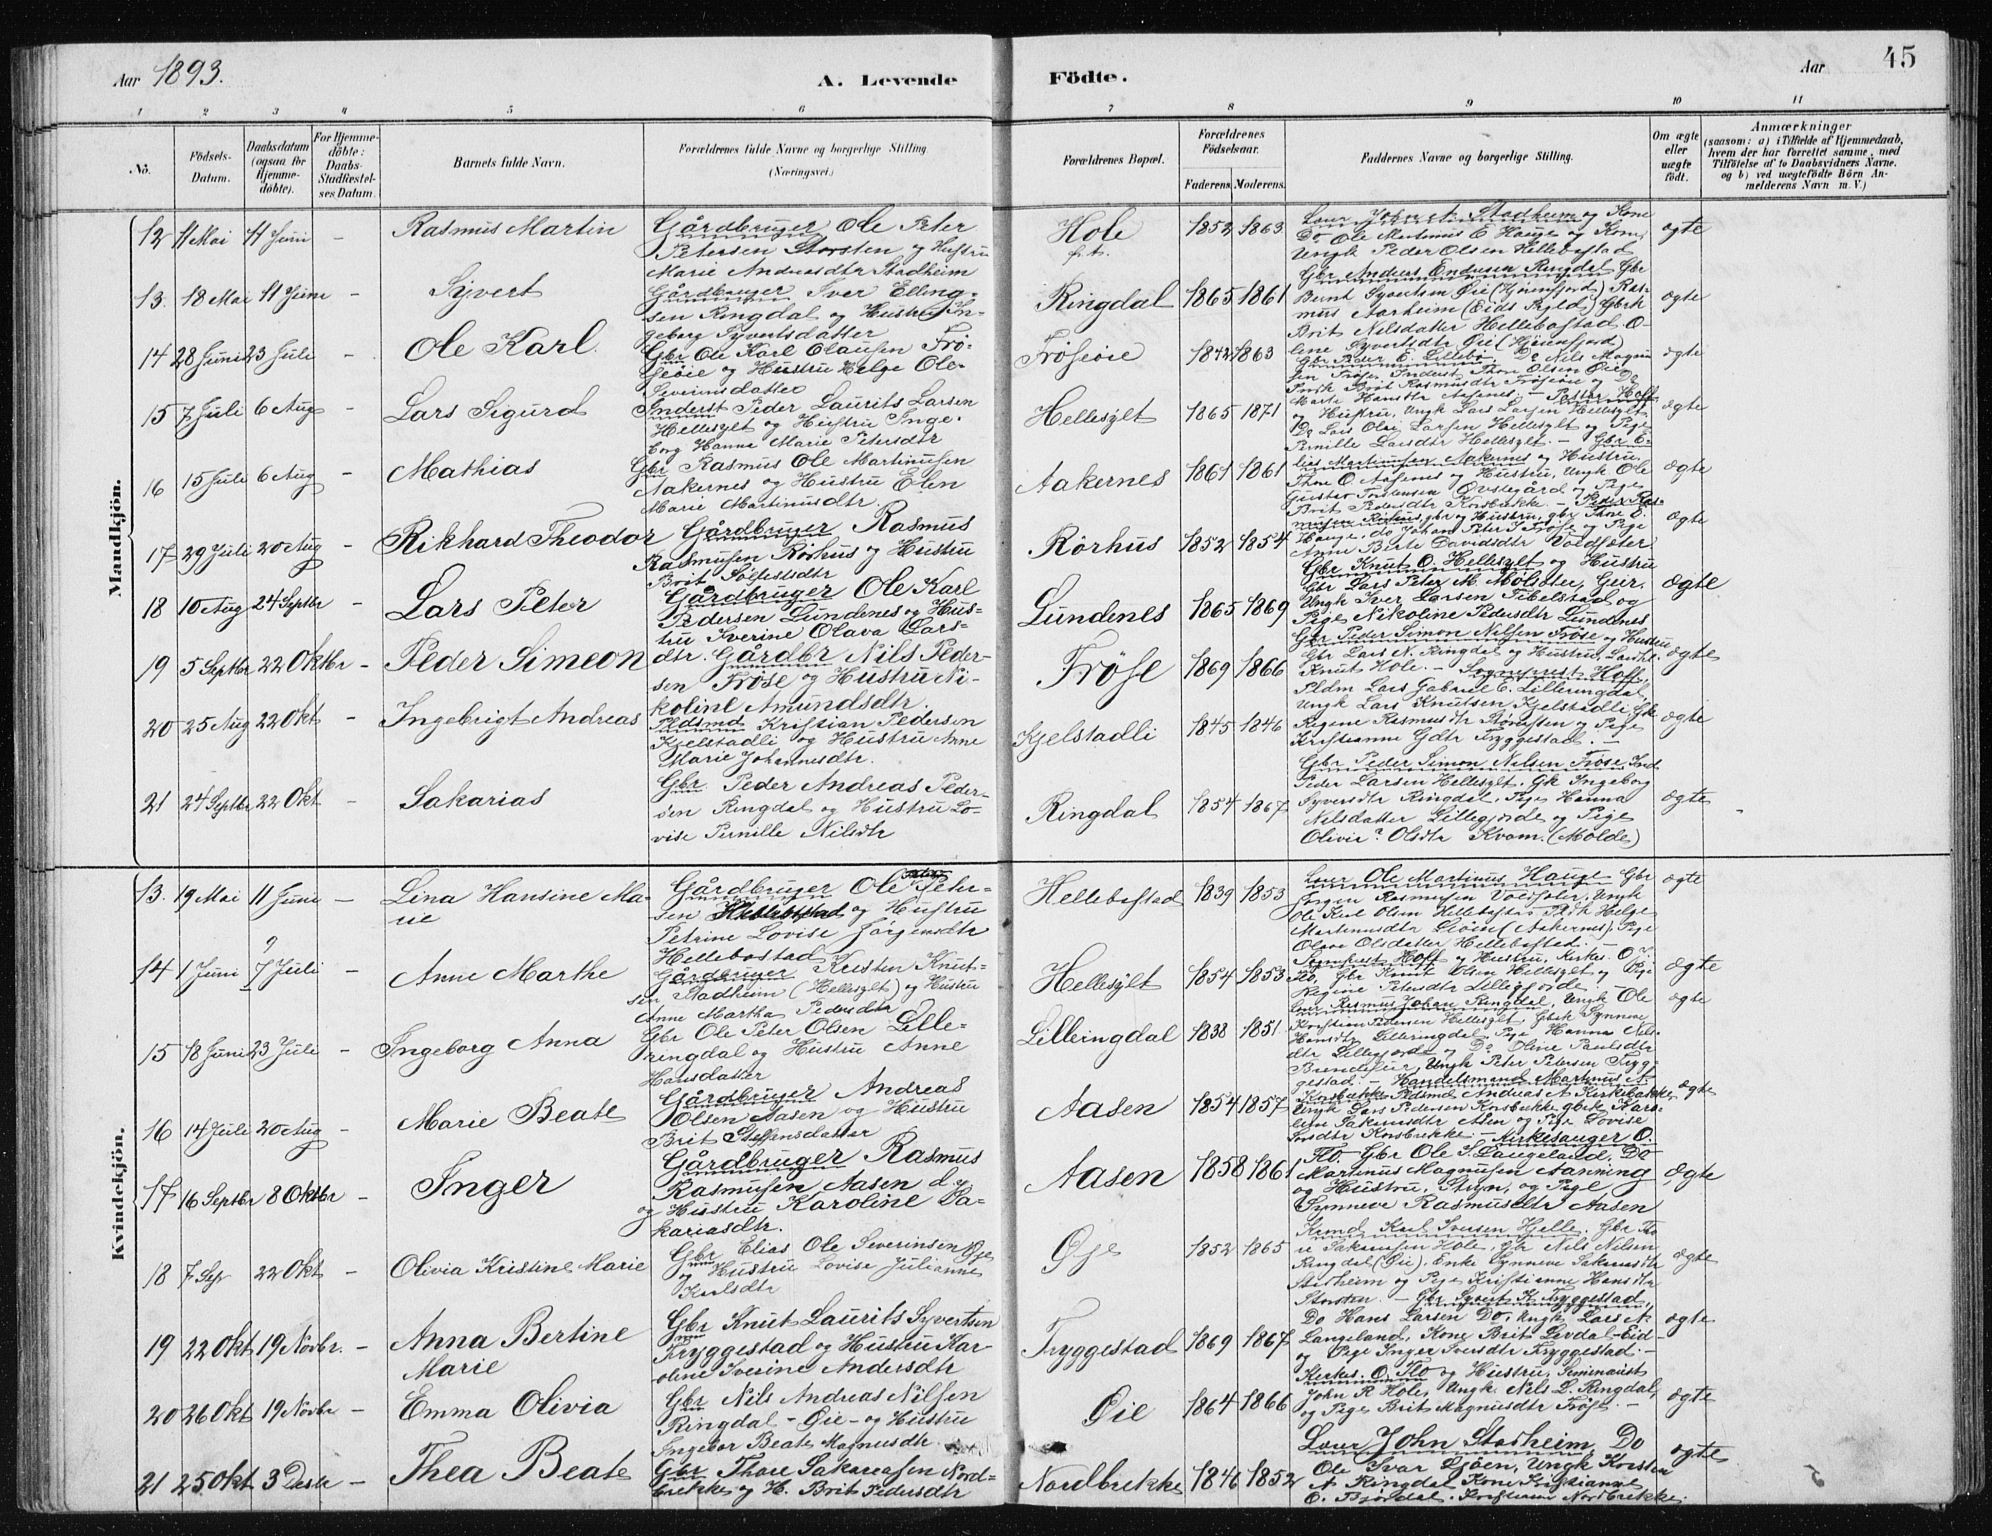 Aar 1893.
A. Levende
Födte.
Aar
45
1 2 3 4 5 6 7 8 9 10 11
No.
Födsels-
Datum.
Daabsdatum
(ogsaa for
Hjemme-
döbte).
For Hjemme-
döbte:
Daabs-
Stadfæstel-
ses Datum.
Barnets fulde Navn.
Forældrenes fulde Navne og borgerlige Stilling
(Næringsvei.)
Forældrenes Bopæl.
Forældrenes
Födselsaar.
Faderens. Moderens.
Faddernes Navne og borgerlige Stilling.
Om ægte
eller
uægte
födt.
Anmærkninger
(saasom: a) i Tilfælde af Hjemmedaab,
hvem der har forrettet samme, med
Tilföielse af to Daabsvidners Navne,
og b) ved uægtefödte Börn An-
melderens Navn m. V.)
Mandkjön.
12 11 Mai 11 Juni - Rasmus Martin
Gårdbruger Ole Peter
Petersen Storsten og Hustru
Marie Andreasdtr Stadheim
Hole
1852 1863
Ole Martinus E Hauge og Kone
Ungk Peder Olsen Hellebostad
ægte
13. 18 Mai 11 Juni - Syvert
Gårdbruger Iver Elling-
sen Ringdal og Hustru In-
geborg Syvertsdatter
Ringdal
1865 1861
Gbr Anders Endresen Ringdal Gbr
Bernt Syvertsen Øie (Hjörenfjord) Ras-
mus Aarheim (Eids Prgjld) Gbrk
Brit Nilsdatter Hellebostad O-
line Syvertsdtr Øie (Hjörenfjord)
ægte
14 28 Juni 23 Juli - Ole Karl.
Gbr Ole Karl Olausen Frö-
seöie og Hustru Helge Ole-
Severinsdatter
Fröseöie
1842 1863
Gbr Peder E. Lillebö, Do Nils Magnu
sen Fröse, Inderst Thore Olsen Øie
Brit Rasmusdtr Fröseöie og Do
Marte Hansdtr Aasenes. -
ægte
15 7 Juli 6 Aug - Lars Sigurd
Inderst Peder Laurits Larsen
Hellesylt og Hustru Inge-
borg Hanna Marie Petersdtr
Hellesylt
1865 1871
Pastor Hoff
og Hustru, Ungk Lars Larsen Hellesylt
Do Lars Olai Larsen Hellesylt og Pige
Pernille Larsdtr Hellesylt. -
ægte
16 15 Juli 6 Aug - Mathias
Gbr Rasmus Ole Martinusen
Aakernes og Hustru Elen
Marie Martinusdtr.
Aakernes
1861 1861
Gbr E-
lias Martinusen Aakernes og Hustru
Thore O. Aasenes og Hustru, Ungk Ole
Gustav Torstensen Ovstegård og Pige
Brit Pedersdtr Korsbrekke. -
ægte
17 29 Juli 20 Aug - Rikhard Theodor
Gårdbruger Rasmus
Rasmusen Rörhus og Hustru
Brit Sölfestsdtr
Rörhus
1852 1854
Peder Ras-
musen Rörhus, gbr og Hustru, gbr Thore O.
Hauge, do Johan Peter I Fröse og Pige
Anne Berte Davidsdtr Voldsæter
ægte
18 10 Aug 24 Septbr - Lars Peter
Gårdbruger Ole Karl
Pedersen Lundenes og Hus-
tru Iverine Olava Lars-
dtr.
Lundenes
1865 1869
Gbr Knut O. Hellesylt og Hustru
Gbr Lars Peter M. Molsæter, Geir.
Ungk Iver Larsen Tibelstad og
Pige Nikoline Pedersdtr Lundenes
ægte
19 5 Septbr 22 Oktbr - Peder Simeon
Gårdbr Nils Peder-
sen Fröse og Hustru Ni-
koline Amundsdtr.
Fröse
1869 1866
Gbr Peder Simon Nilsen Fröse og Hustru
Gbr Lars N. Ringdal og Hustru,
Knut Hole. -
ægte
20 25 Aug 22 Okt - Ingebrigt Andreas
Pldsmd Kristian Pedersen
Kjelstadli og Hustru Anne
Marie Johannesdtr.
Kjelstadli
1845 1846
Sogneprest Hoff,
Pldm Lars Gabriel E. Lilleringdal,
Ungk Lars Knutsen Kjelstadli Gk
Regine Rasmusdtr Storesten og Pige
Kristianne Gdtr Tryggestad. -
ægte
21 24 Septbr 22 Okt - Sakarias
Gbr Peder Andreas Peder-
sen Ringdal og Hustru Lo-
vise Pernille Nilsdtr
Ringdal
1854 1867
Gbr Peder Simon Nilsen Fröse Ind
Peder Larsen Hellesylt. Gk Ingeborg
Syversdtr Ringdal, Pige Hanna
Nilsdatter Lillegjerde og Pige
Olivia Olsdtr Kvam. (Molde)
ægte
Kvindekjön.
13. 19 Mai 11 Juni - Lina Hansine Ma-
rie
Gårdbruger Ole Peter-
sen Hellebostad og Hustru
Petrine Lovise Jörgensdtr
Hellebostad
Hellebostad
1839 1853
Lærer Ole Martinus Hauge Gbr
Jörgen Rasmusen Voldsæter, Ungk
Ole Karl Olsen Hellebostad Pldk Helge
Martinusdtr Liöen (Aakernes) Pige
Olava Olsdatter Hellebostad. -
ægte
14 1 Juni 7 Juli - Anne Marthe
Gårdbruger Kristen Knut-
sen Stadheim (Hellesylt) og Hustru
Anne Martha Pedersdtr
Hellesylt
1854 1853
Sognprest Hoff og Hustru, Kirkes. O.
Flo, Gbr Knut Olsen Hellesylt og Pige
Regine Petersdtr Lillegjerde. -
ægte
15 18 Juni 23 Juli - Ingeborg Anna
Gbr Ole Peter Olsen Lille-
ringdal og Hustru Anne
Hansdatter
Lilleringdal
1838 1851
Gbr Rasmus Johan Ringdal, Ungk Ole
Kristian Pedersen Hellesylt Gbrk Synneve
Hansdtr Lilleringdal, Pige Hanna Nils-
dtr Lillegjerde og Do Oline Paulsdtr
Ungk Peter Petersen Trygg-
gestad. -
ægte
16 14 Juli 20 Aug - Marie Beate
Gårdbruger Andreas
Olsen Aasen og Hustru
Brit Steffensdatter
Aasen
1854 1857
Handelsmand Martinus A
Korsbrekke Pldsmd Andreas A Kirkebakke
Ungk Lars Pedersen Korsbrekke gbrk Kars-
line Sakariasdtr Aasen og Pige Lovise
Larsdtr Korsbrekke. -
ægte
17 16 Septbr 8 Oktbr - Inger
Gårdbruger Rasmus
Rasmusen Aasen d. y
og Hustru Karoline Sa-
kariasdtr.
Aasen
1858 1861
Kirkesanger O.
Flo. Gbr Ole S. Langeland, Do
Martinus Magnusen Aanning
og Hustru, Stryn, og Pige
Synneve Rasmusdtr Aasen
ægte
18 7 Sep 22 Okt - Olivia Kristine Marie
Gbr Elias Ole Severinsen Øje
og Hustru Lovise Julianne
Karlsdtr
Øje
1852 1865
Kmd Karl Iversen Hjelle. Gbr
Sakariasen Hole, Gbr Nils Nilsen
Ringdal (Øie). Enke Synneve Sakariasdtr
Stadheim og Pige Kristianne Hansdtr
Storsten. -
ægte
19 22 Okt 19 Novbr. - Anna Bertine
Marie
Gbr Knut Laurits Syvertsen
Tryggestad og Hustru Kar-
oline Iverine Andersdtr
Tryggestad
1869 1867
Gbr Syvert K. Tryggestad,
Do Hans Larsen Do, Ungk Lars N.
Langeland, Kone Brit Levdal-Eid-
og Pige Inger Iversdtr Tryggestad. -
ægte
20 26 Okt 19 Novbr - Emma Olivia
Gbr Nils Andreas Nilsen
Ringdal - Øie - og Hustru
Ingebor Beate Magnusdtr.
Øie
1864 1866
Kirkes. O. Flo og Hustru, Seminarist
John R Hole, Ungk. Nils L. Ringdal,
og Pige Brit Magnusdtr Fröse. -
ægte
21 25 Okt 3 Desbr - Thea Beate
Gbr Thore Sakariasen Nord-
brekke og H. Brit Pedersdtr
Nordbrekke
1846 1852
Lærer John Stadheim, Do
Ole Ivar Liöen, Ungk Karsten
A Ringdal Kone Kristianne
O. Björdal. Kristianne Nordbrekke.
ægte